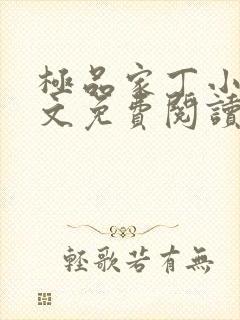 極品家丁小
文免費閱讀
輕歌若有無